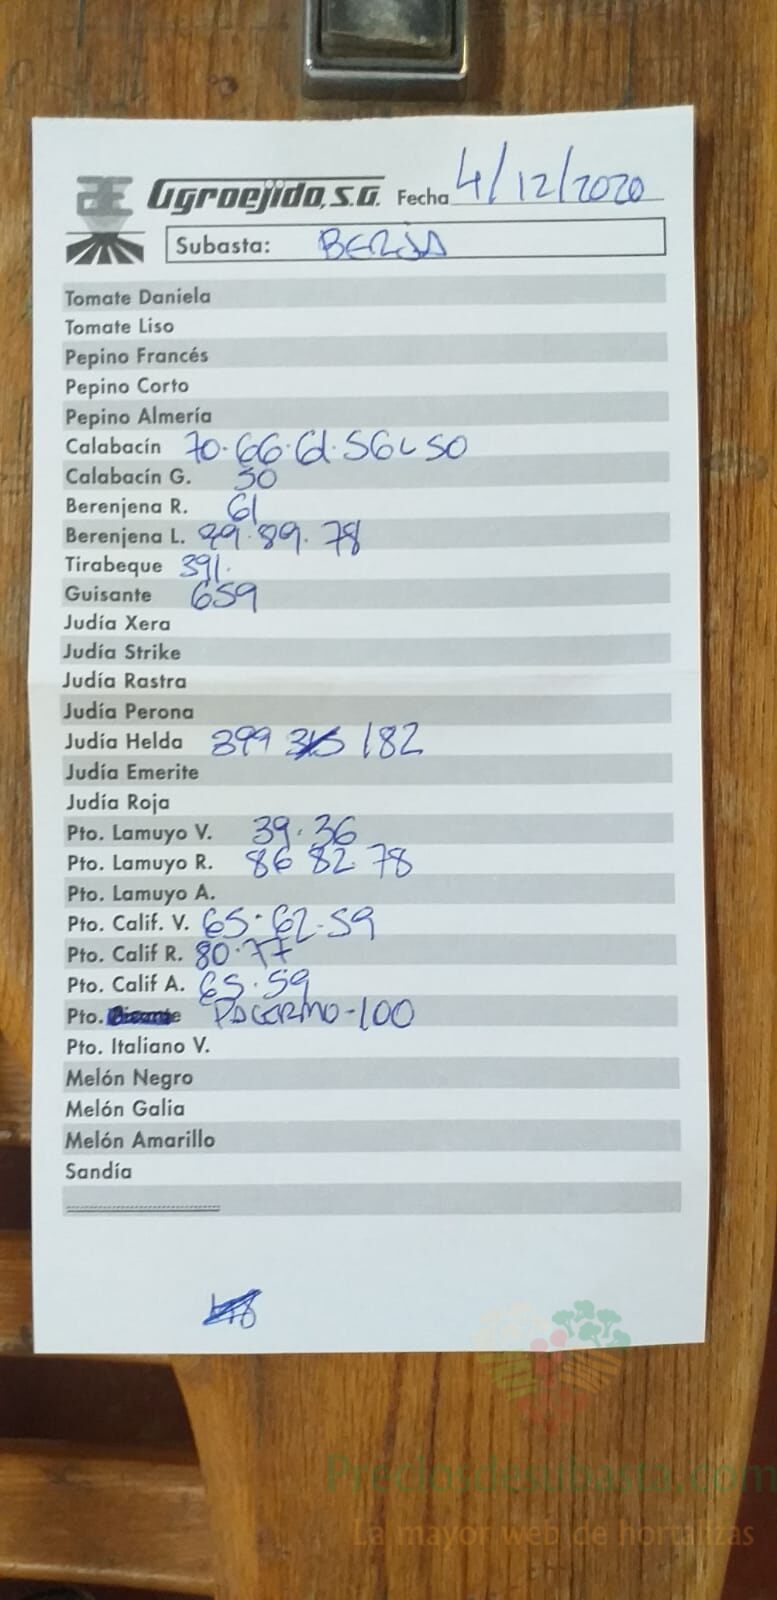 Agroejido, S.A. Fecha 4/12/2020
Subasta: BERJA
Tomate Daniela
Tomate Liso
Pepino Francés
Pepino Corto
Pepino Almería
Calabacín 70·66·61·56 50
Calabacín G. 50
Berenjena R. 61
Berenjena L. 99·89·78
Tirabeque 391.
Guisante 659
Judía Xera
Judía Strike
Judía Rastra
Judía Perona
Judía Helda 399 182
Judía Emerite
Judía Roja
Pto. Lamuyo V. 39·36
Pto. Lamuyo R. 86 82·78
Pto. Lamuyo A.
Pto. Calif. V. 65·62·59
Pto. Calif R. 80·77
Pto. Calif A. 65·59
Pto. PALERMO-100
Pto. Italiano V.
Melón Negro
Melón Galia
Melón Amarillo
Sandía
Preciosdesubasta.com
La mayor web de hortalizas